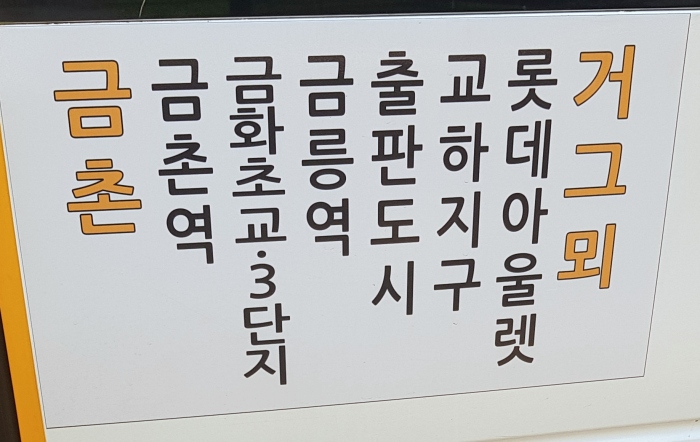 금촌
금촌역
금화초교·3단지
금릉역
출판도시
교하지구
롯데아울렛
거그뫼